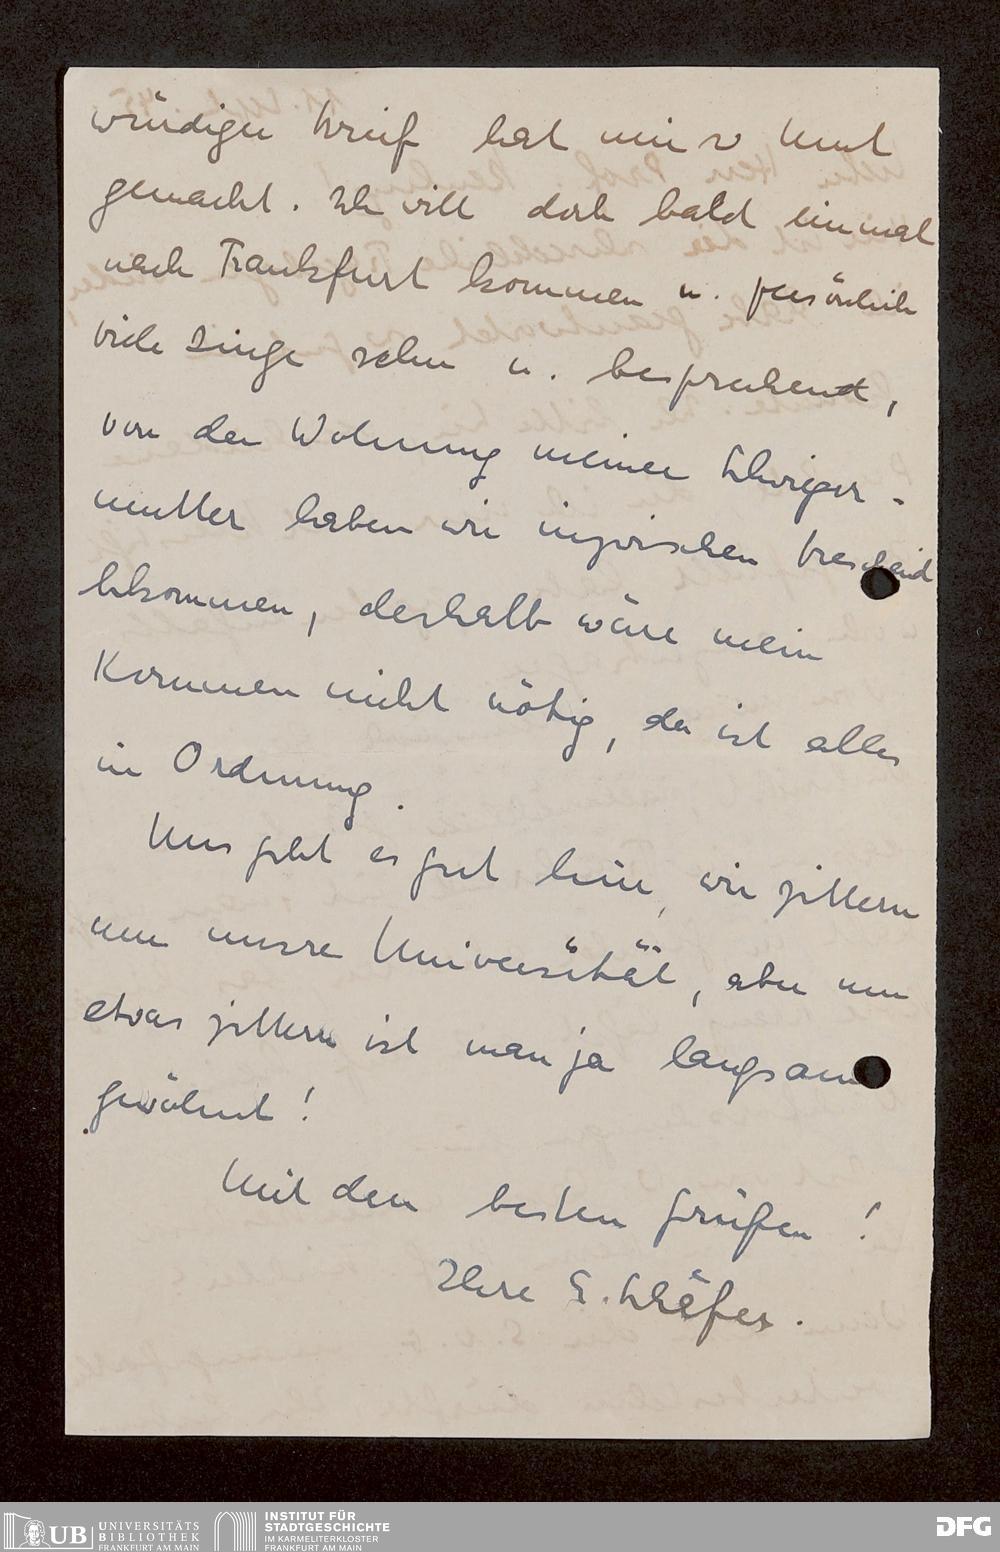 würdiger Brief hat mir Mut
gemacht. Ich will doch bald einmal
nach Frankfurt kommen u. persönlich
viele Dinge sehen u. besprechend,
von der Wohnung meiner Schwieger-
mutter haben wir inzwischen Bescheid
bekommen, deshalb wäre mein
Kommen nicht nötig, da ist alles
in Ordnung.
Uns geht es gut hier, wir zittern
um unsre Universität, aber um
etwas zittern ist man ja langsam
gewöhnt!
Mit den besten Grüßen!
Ihre E. Schäfer.
UB UNIVERSITÄTS
BIBLIOTHEK
FRANKFURT AM MAIN
INSTITUT FÜR
STADTGESCHICHTE
IM KARMELITERKLOSTER
FRANKFURT AM MAIN
DFG